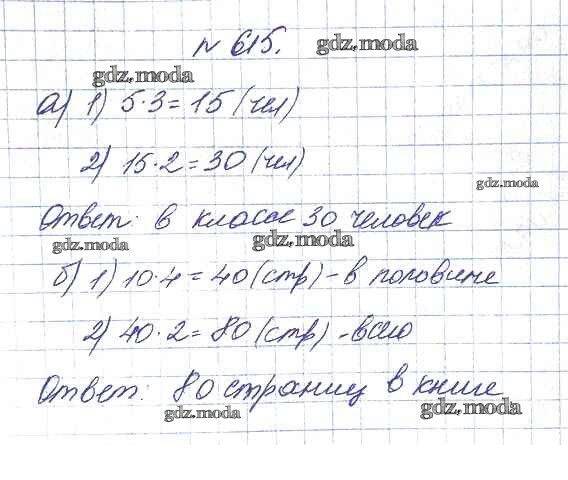 № 615.
gdz.moda
gdz.moda
а) 1) 5·3=15 (чел)
2) 15·2=30 (чел)
gdz.moda
Ответ: в классе 30 человек
gdz.moda
gdz.moda
б) 1) 10·4=40 (стр) - в половине
2) 40·2=80 (стр) - всего
Ответ: 80 страниц в книге
gdz.moda
gdz.moda